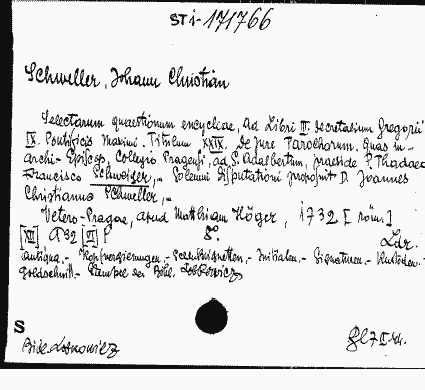 STi-171766
Schweller, Johann Christian
Selectarum quaestionum encycliae, ad Libri III. Decretalium Gregorii
IX. Pontificis Maximi. Titulum XXIX. De Jure Parochorum. Quas in
archi-Episcop. Collegio Pragensi, ad S. Adalbertum, praeside P. Thadaeo
Francisco Schweiger,.. Solemni disputationi proposuit D. Joannes
Christianus Schweller,..
Vetero-Pragae, apud Matthiam Höger, 1732 [röm.]
[XII] 432 [VI] p 8°. Ldr.
Antiqua.- Kopfverzierungen.- Initialen.- Signaturen.- Kustoden.-
Goldschnitt.- Stempel der Bibl. Lobkowicz
S
Bibl. Lobkowicz